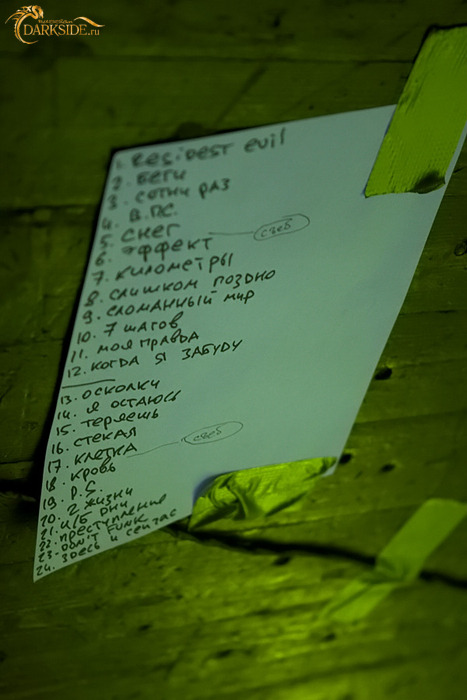 DARKSIDE.ru
1. Resident evil
2. Беги
3. Сотни раз
4. В.ПС.
5. Снег
6. Эффект
7. Километры
8. Слишком поздно
9. Сломанный мир
10. 7 шагов
11. Моя правда
12. Когда я забуду
13. Осколки
14. Я остаюсь
15. Теряешь
16. Стекая
17. Клетка
18. Кровь
19. P.S.
20. 2 жизни
21. Ч/Б дни
22. Преступление
23. Don't funk
24. Здесь и сейчас